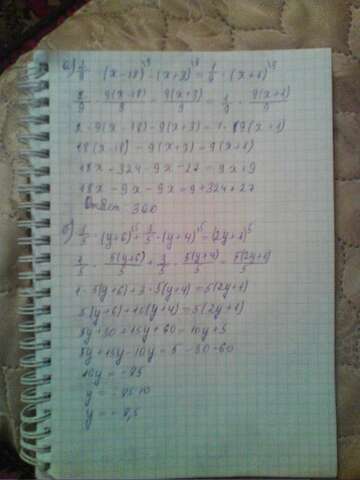 а) 2/9 · (x-18)^\9 - (x+3)^\9 = 1/9 · (x+1)^\9
2/9 · 9(x-18)/9 - 9(x+3)/9 = 1/9 · 9(x+1)/9
2 · 9(x-18) - 9(x+3) = 1 · 9(x+1)
18(x-18) - 9(x+3) = 9(x+1)
18x - 324 - 9x - 27 = 9x + 9
18x - 9x - 9x = 9 + 324 + 27
360
б) 1/5 · (y+6)^\5 + 3/5 · (y+4)^\5 = (2y+1)^\5
1/5 · 5(y+6)/5 + 3/5 · 5(y+4)/5 = 5(2y+1)/5
1 · 5(y+6) + 3 · 5(y+4) = 5(2y+1)
5(y+6) + 15(y+4) = 5(2y+1)
5y + 30 + 15y + 60 = 10y + 5
5y + 15y - 10y = 5 - 30 - 60
10y = -85
y = -85:10
y = -8,5